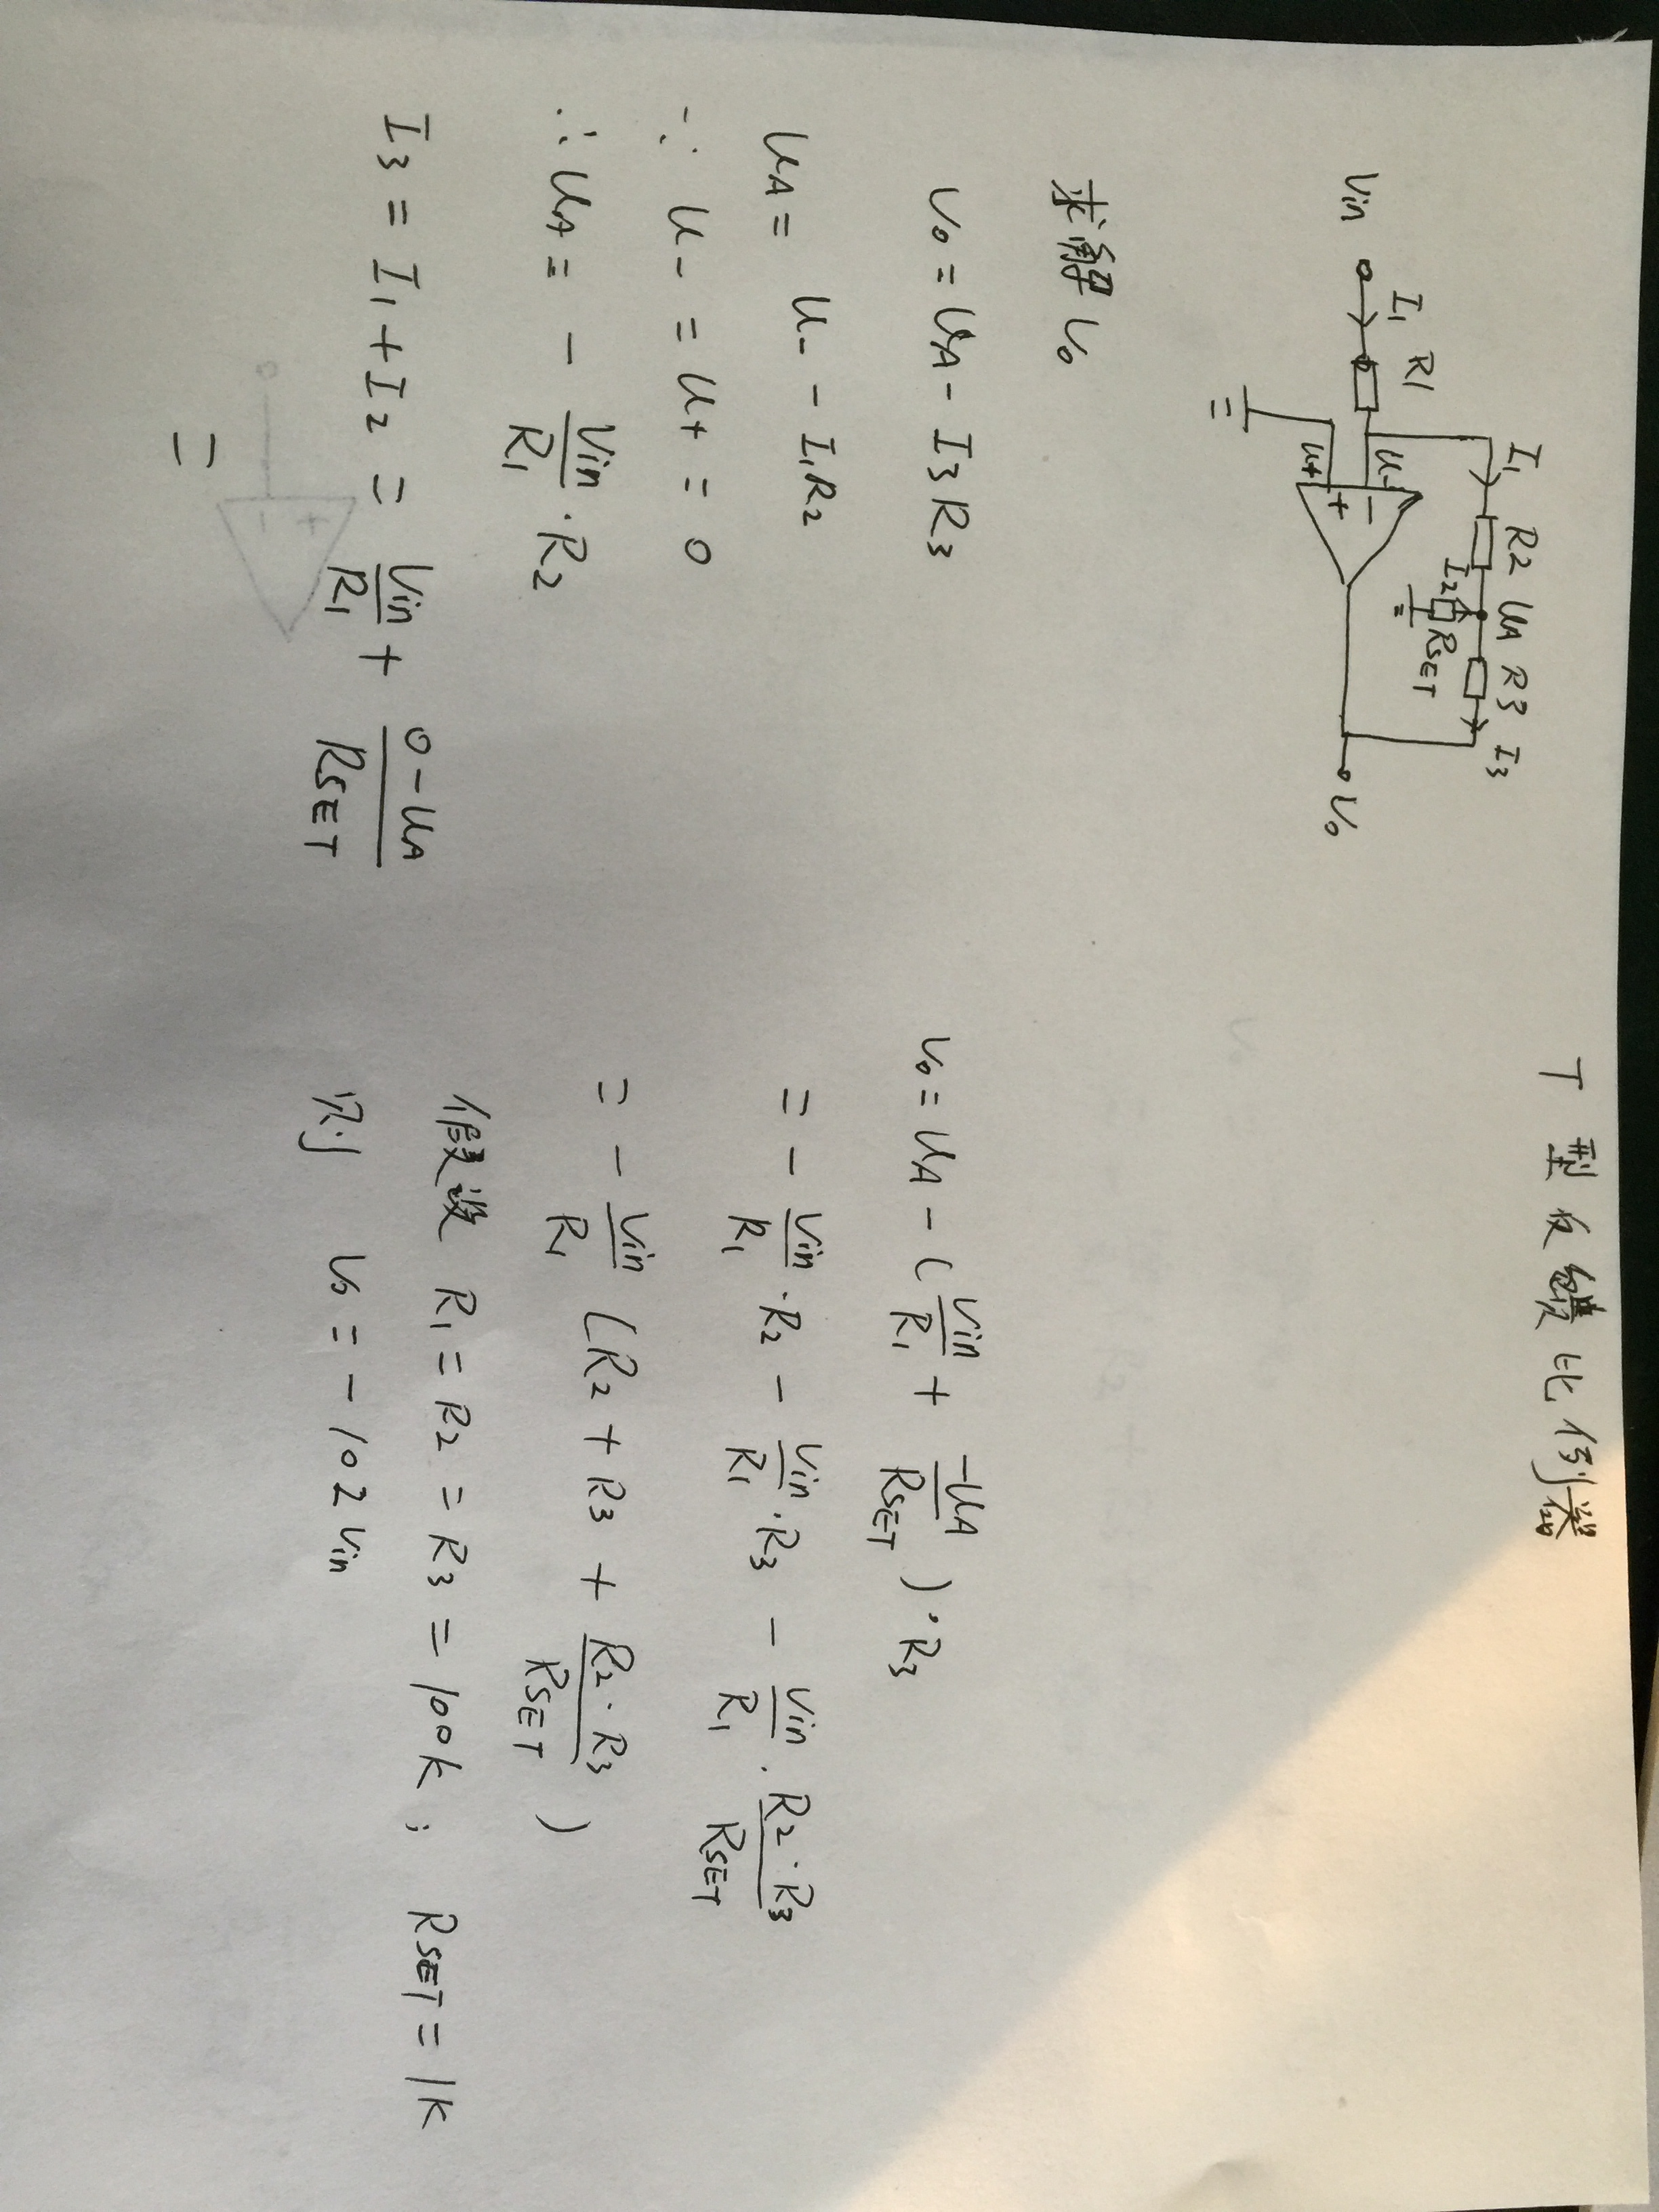 T型反馈比例器
Vin I₁ R1 I₁ R2 UA R3 I₃
U- U+ - + I₂ RSET V₀
求解V₀
V₀ = UA - I₃R₃
UA = U- - I₁R₂
∵ U- = U+ = 0
∴ UA = - Vin/R₁ · R₂
I₃ = I₁ + I₂ = Vin/R₁ + (0-UA)/RSET
=
V₀ = UA - (Vin/R₁ + -UA/RSET) · R₃
= - Vin/R₁ · R₂ - Vin/R₁ · R₃ - Vin/R₁ · R₂·R₃/RSET
= - Vin/R₁ (R₂ + R₃ + R₂·R₃/RSET)
假设 R₁ = R₂ = R₃ = 100k; RSET = 1K
则 V₀ = -102Vin